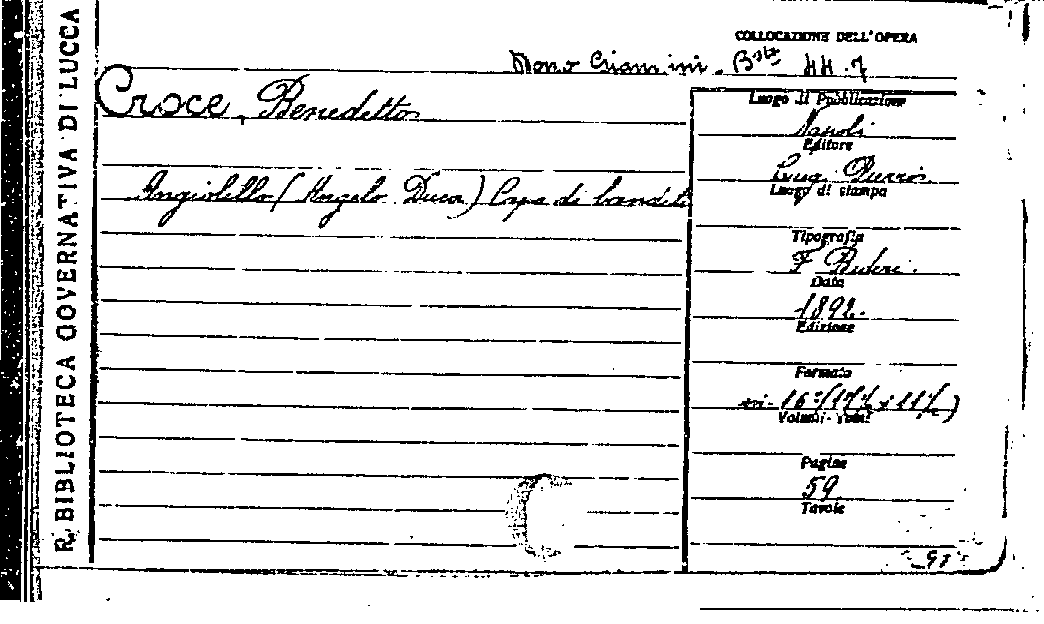 R. BIBLIOTECA GOVERNATIVA DI LUCCA
COLLOCAZIONE DELL'OPERA
Dono Bsta 44.7
Croce, Benedetto
Angiolillo (Angelo Duca) Capo di banditi
Luogo di Pubblicazione
Napoli
Editore
Luig. Pierro
Luogo di stampa
Tipografia
F
Data
1892.
Edizione
Formato
in-16°
Volumi-Tomi
Pagine
59
Tavole